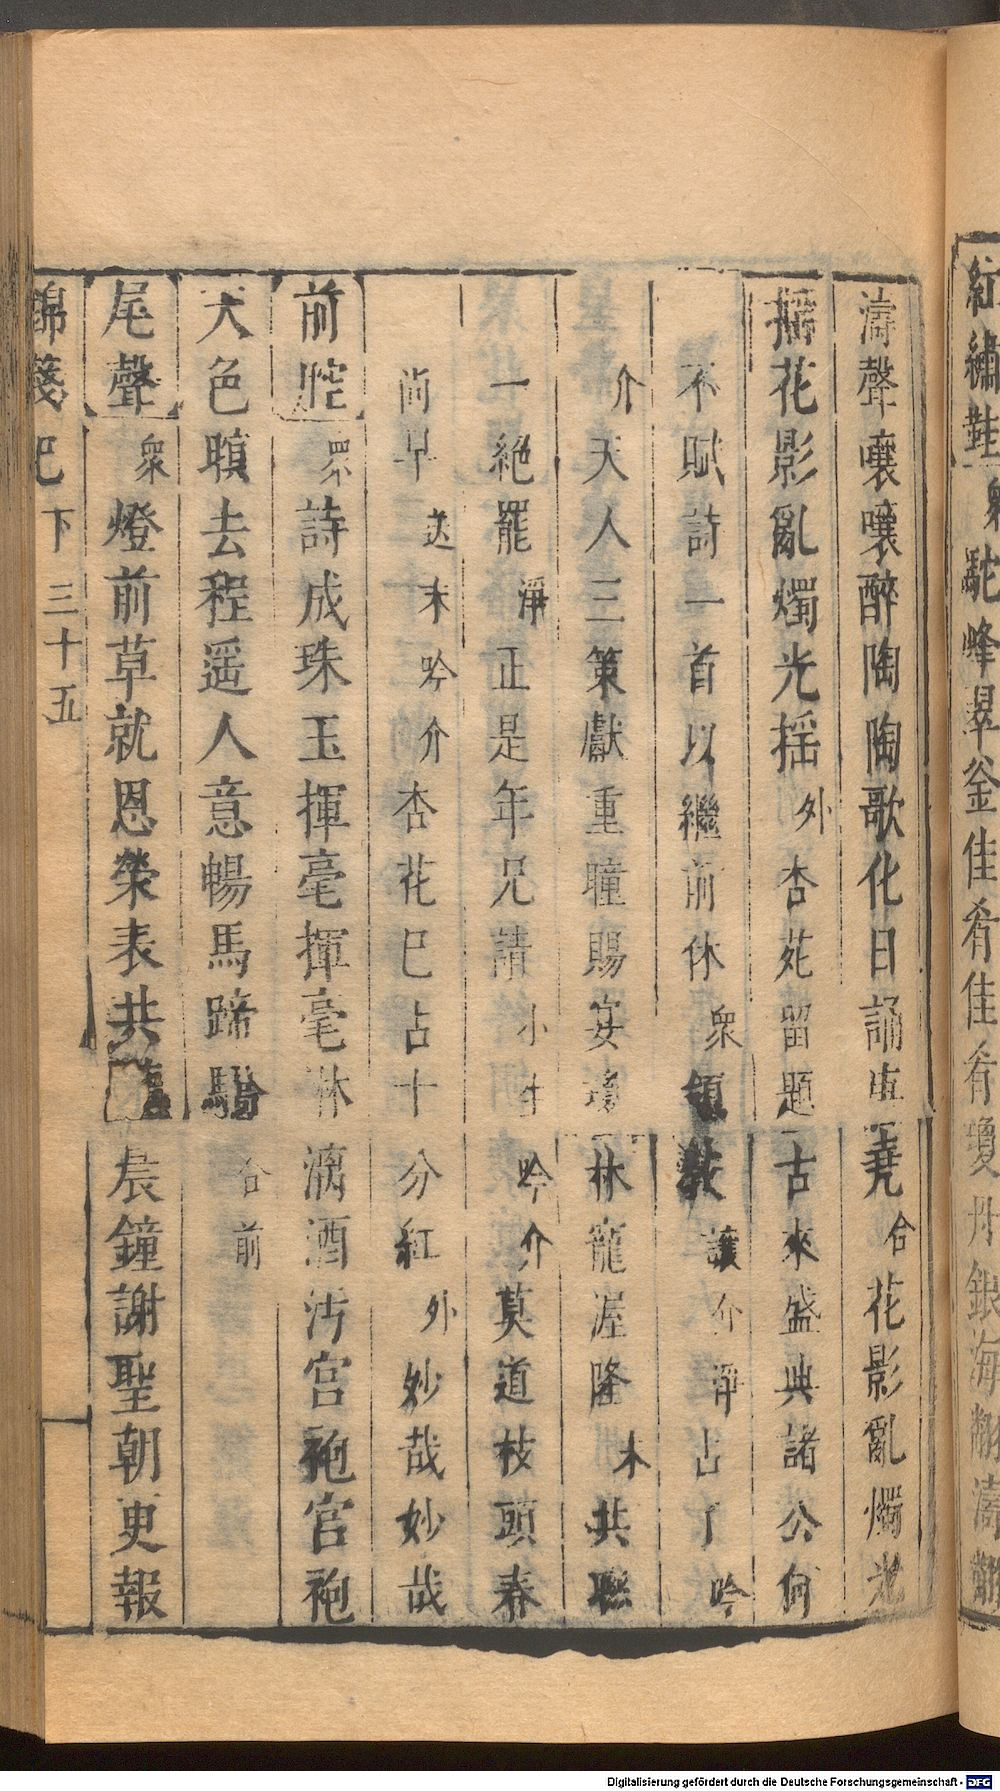 紅繡鞋衆駝峰翠釜佳肴佳肴瓊丹銀海翻濤翻
濤聲嚷嚷醉陶陶陶歌化日誦唐堯合花影亂燭光
搖花影亂燭光摇外杏苑留題古來盛典諸公何
不賦詩一首以繼前休衆領教譲介淨占了吟
介天人三策獻重瞳賜宴林寵渥隆末共
一絕罷淨正是年兄請小生吟介莫道枝頭春
尚早送末吟介杏花已占十分紅外妙哉妙哉
前腔衆詩成珠玉揮毫揮毫淋漓酒汚宮袍宮袍
天色暝去程遥人意暢馬蹄驕合前
尾聲衆燈前草就恩榮表共晨鐘謝聖朝更報
錦箋記下三十五
Digitalisierung gefördert durch die Deutsche Forschungsgemeinschaft - DFG